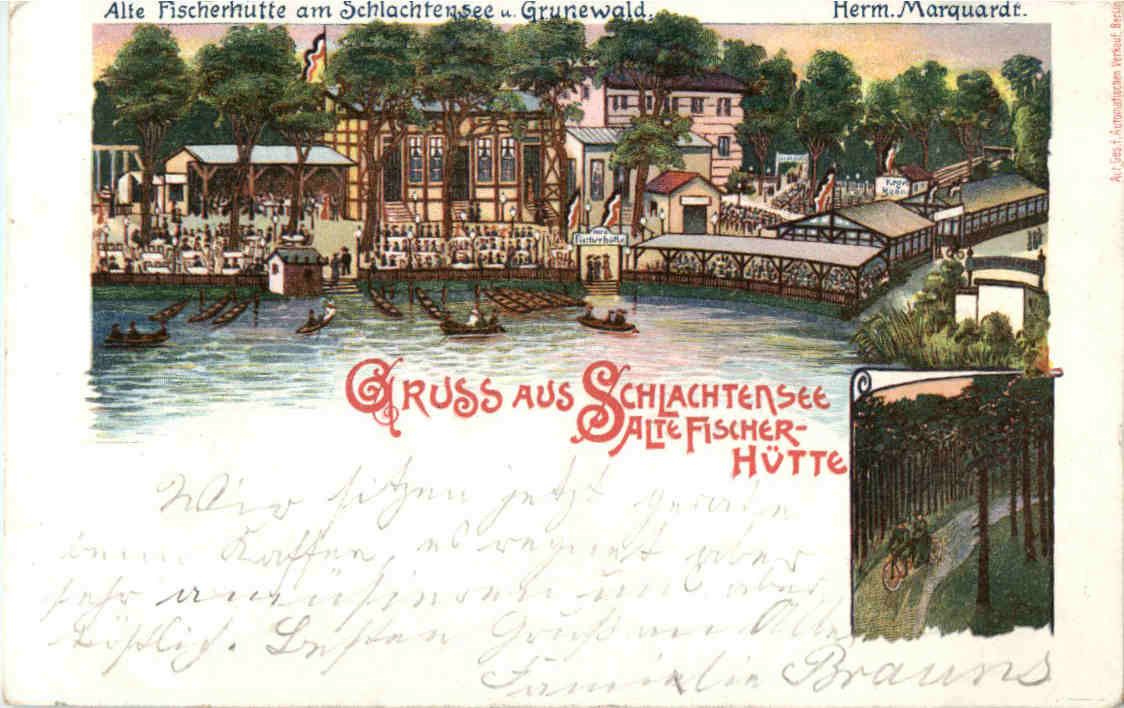 Alte Fischerhütte am Schlachtensee u. Grunewald.
Herm. Marquardt.
Act. Ges. f. Automatischen Verkauf, Berlin
Alte
Fischerhütte
Kegel
Bahn
GRUSS AUS SCHLACHTENSEE
ALTE FISCHER-
HÜTTE
Wir sitzen jetzt gerade
beim Kaffee, es regnet aber
sehr amüsieren uns aber
köstlich. Besten Gruß an Alle
Familie Brauns